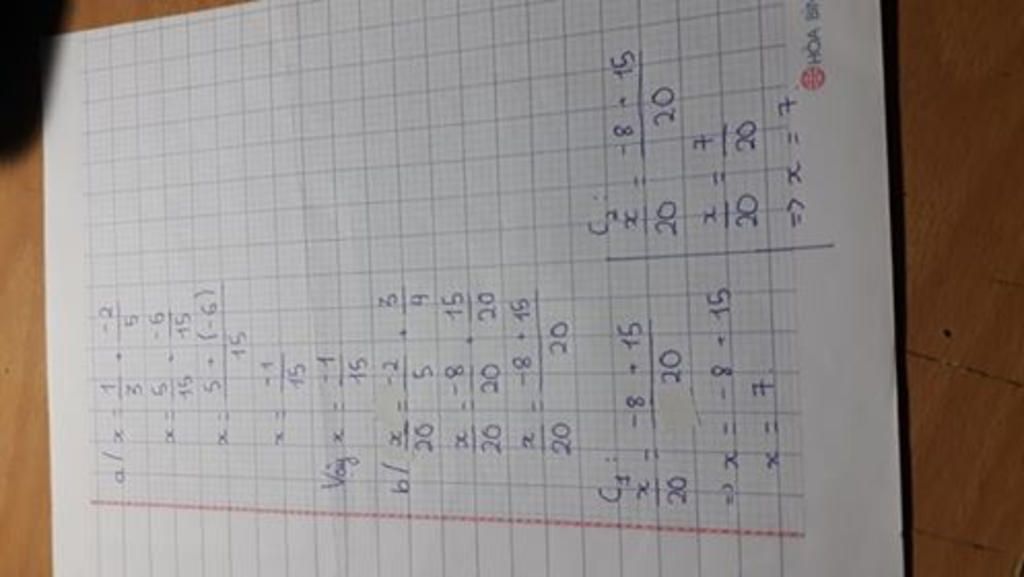 a/ x = 1/3 + -2/5
x = 5/15 + -6/15
x = 5 + (-6)/15
x = -1/15
Vậy x = -1/15
b/ x/20 = -2/5 + 3/4
x/20 = -8/20 + 15/20
x/20 = -8 + 15/20
C1: x/20 = -8 + 15/20
=> x = -8 + 15
x = 7
C2: x/20 = -8 + 15/20
x/20 = 7/20
=> x = 7
HÒA